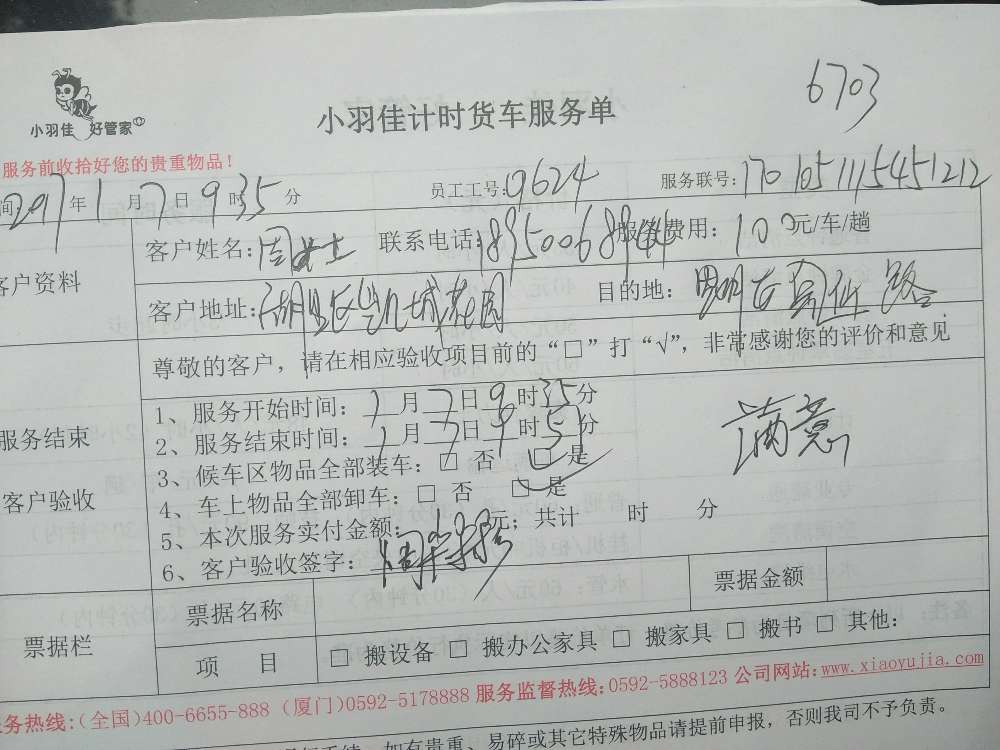 6703
小羽佳 好管家
小羽佳计时货车服务单
服务前收拾好您的贵重物品！
间2017年1月7日9时35分 员工工号:09624 服务联号:170105111545 1212
客户资料 客户姓名:周女士 联系电话: 服务费用:100元/车/趟
客户地址: 目的地:
尊敬的客户，请在相应验收项目前的“□”打“√”，非常感谢您的评价和意见
服务结束
客户验收
1、服务开始时间:1月7日9时35分
2、服务结束时间:1月7日9时51分
3、候车区物品全部装车:□ 否 □ 是
4、车上物品全部卸车:□ 否 □ 是
5、本次服务实付金额: 元；共计 时 分
6、客户验收签字:
满意
票据栏 票据名称 票据金额
项 目 □ 搬设备 □ 搬办公家具 □ 搬家具 □ 搬书 □ 其他:
务热线:(全国)400-6655-888 (厦门)0592-5178888 服务监督热线:0592-5888123 公司网站:www.xiaoyujia.com
如有贵重、易碎或其它特殊物品请提前申报，否则我司不予负责。